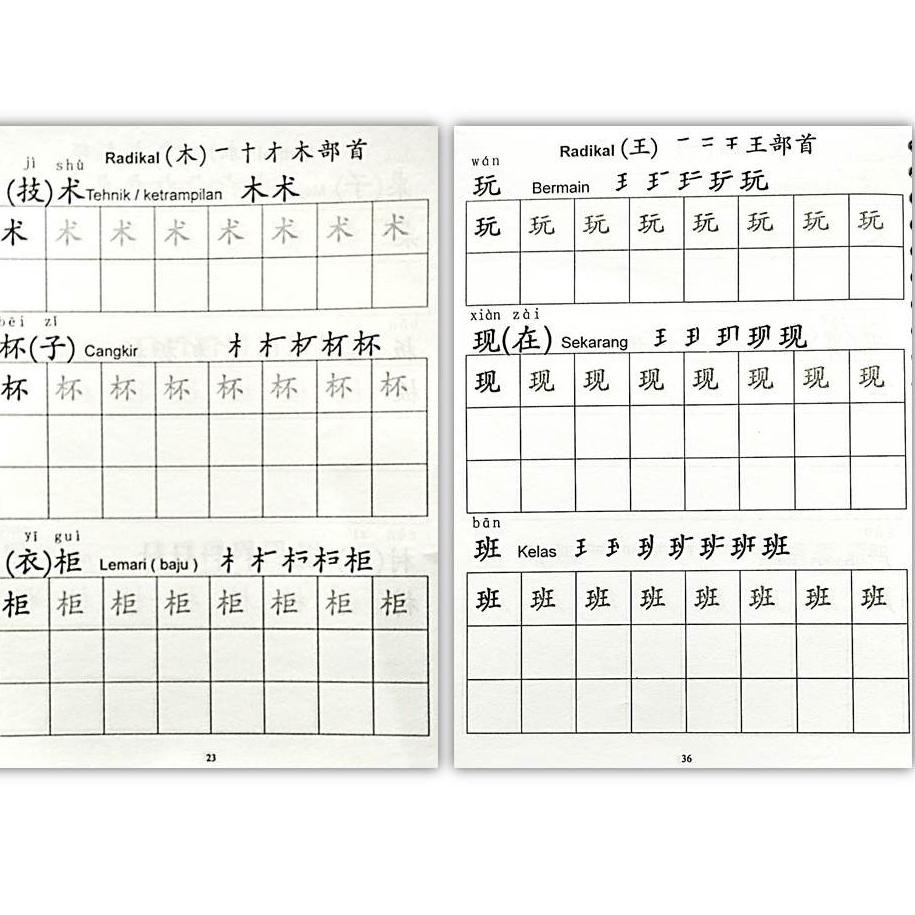 Radikal (木) 一十才木部首
jì shù
(技)术 Tehnik / ketrampilan 木术
术 术 术 术 术 术 术 术
bēi zǐ
杯(子) Cangkir
杯 杯 杯 杯 杯 杯 杯 杯
yī guì
(衣)柜 Lemari ( baju )
柜 柜 柜 柜 柜 柜 柜 柜
23
Radikal (王) 一二干王部首
wán
玩 Bermain 玩
玩 玩 玩 玩 玩 玩 玩 玩
xiàn zài
现(在) Sekarang 现
现 现 现 现 现 现 现 现
bān
班 Kelas 班
班 班 班 班 班 班 班 班
36